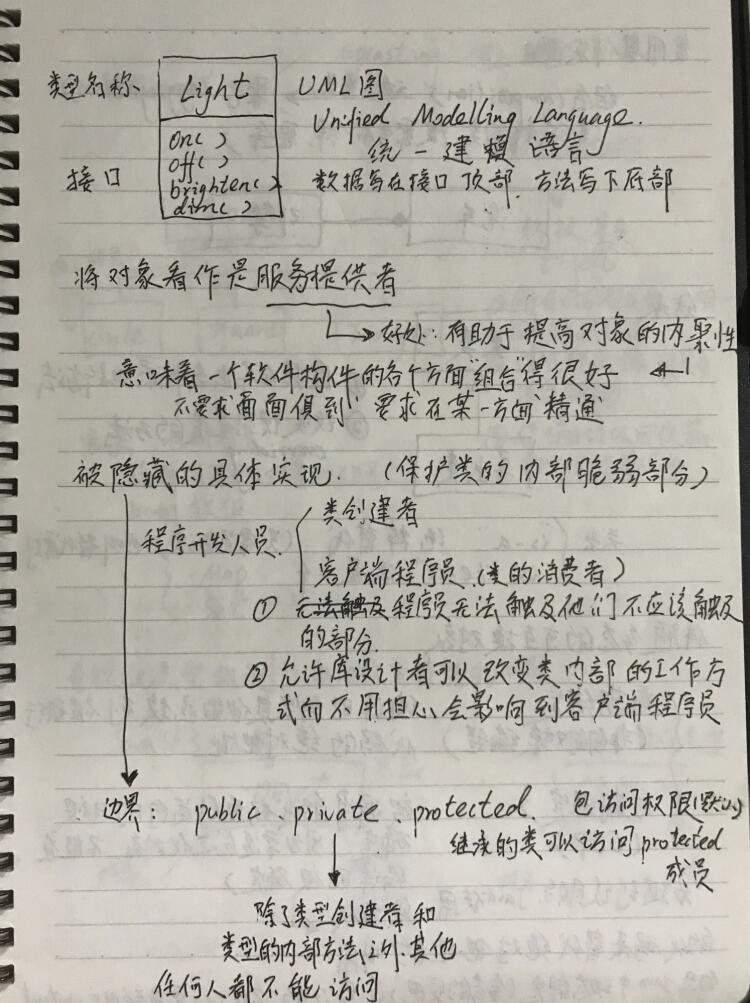 类型名称、 Light UML图
Unified Modelling Language.
on( ) 统一建模语言
off( )
接口 brighten( ) 数据写在接口顶部,方法写下底部
dim( )
将对象看作是服务提供者
好处:有助于提高对象的内聚性
意味着一个软件构件的各个方面"组合"得很好
不要求"面面俱到" 要求在某一方面"精通"
被隐藏的具体实现. (保护类的内部脆弱部分)
类创建者
程序开发人员.
客户端程序员.(类的消费者)
① 无法触及程序员无法触及他们不应该触及
的部分.
② 允许库设计者可以改变类内部的工作方
式而不用担心会影响到客户端程序员
边界: public、private、protected. 包访问权限(默认)
继承的类可以访问protected
成员
除了类型创建者和
类型的内部方法之外.其他
任何人都不能访问